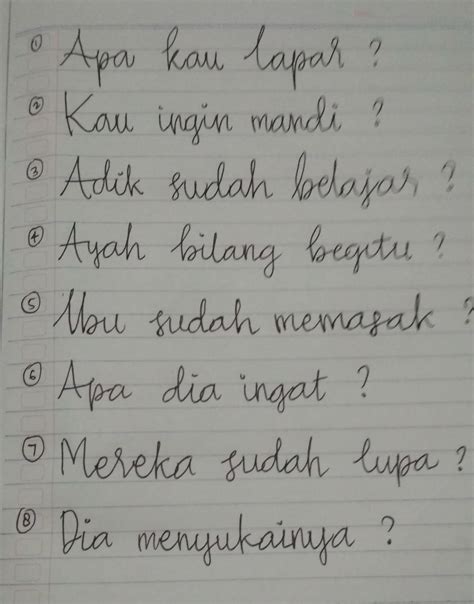 ① Apa kau lapar ?
② Kau ingin mandi ?
③ Adik sudah belajar ?
④ Ayah bilang begitu ?
⑤ Ibu sudah memasak ?
⑥ Apa dia ingat ?
⑦ Mereka sudah lupa ?
⑧ Dia menyukainya ?